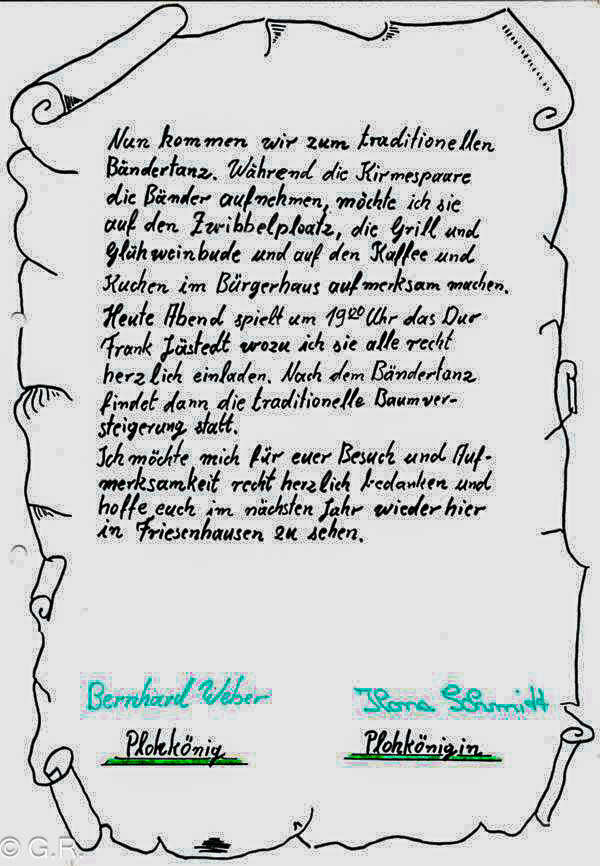 Nun kommen wir zum traditionellen
Bändertanz. Während die Kirmespaare
die Bänder aufnehmen, möchte ich sie
auf den Zwibbelploatz, die Grill und
Glühweinbude und auf den Kaffee und
Kuchen im Bürgerhaus aufmerksam machen.
Heute Abend spielt um 19⁰⁰ Uhr das Duo
Frank Jästedt wozu ich sie alle recht
herzlich einladen. Nach dem Bändertanz
findet dann die traditionelle Baumver-
steigerung statt.
Ich möchte mich für euer Besuch und Auf-
merksamkeit recht herzlich bedanken und
hoffe euch im nächsten Jahr wieder hier
in Friesenhausen zu sehen.
Bernhard Weber Ilona Schmitt
Plohkönig Plohkönigin
© G.R.